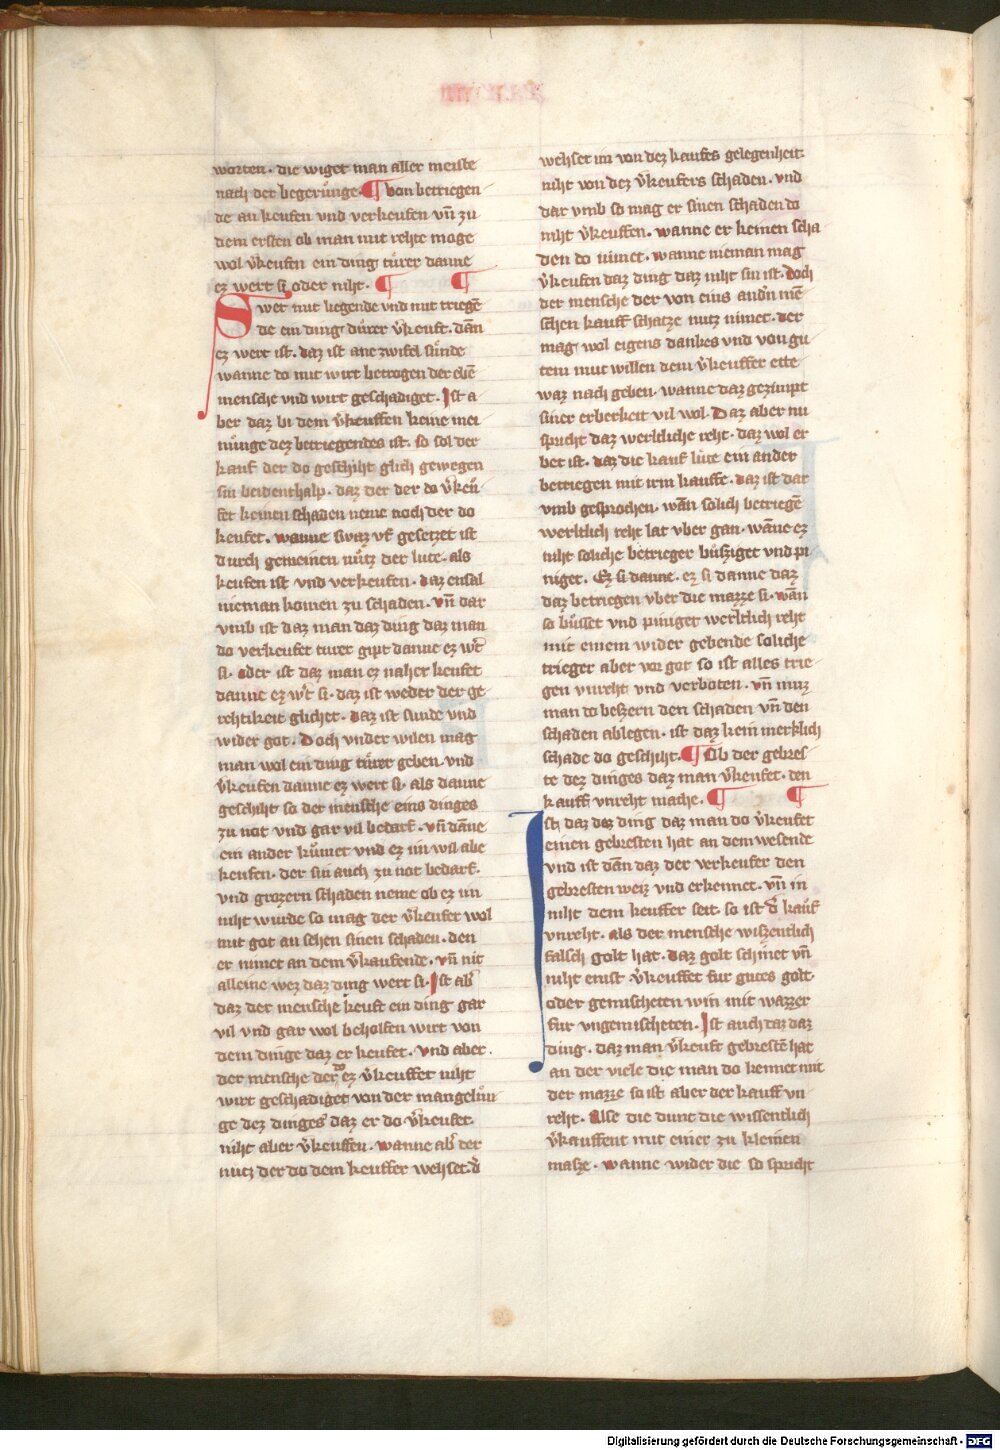 worten · die wiget man aller meiste
nach der begerůnge · ¶ von betriegen
de an keufen vnd verkeufen vn̄ zu
dem ersten ob man mit rehte moge
wol v̓keufen ein ding tůrer danne
ez wert si oder niht · ¶ ¶
Swer mit liegende vnd mit triegē
de ein ding důrer v̓keuft · dān
ez wert ist · daz ist ane zwifel sůnde
wanne do mit wirt betrogen der ebē
mensche vnd wirt geschadiget · Jst a
ber daz bi dem v̓keuffen keine mei
nůnge dez betriegendes ist · so sol der
kauf der do geschiht glich gewegen
sin beidenthalp · daz der der do v̓keů
fet keinen schaden neme noch der do
keufet · wanne swaz vf gesetzet ist
durch gemeinen nůtz der lute · als
keufen ist vnd verkeufen · daz ensal
nieman komen zu schaden · vn̄ dar
vmb ist daz man daz ding daz man
do verkeufet turer gipt danne ez w̓t
si · oder ist daz man ez naher keufet
danne ez w̓t si · daz ist weder der ge
rehtikeit glichet · daz ist sunde vnd
wider got · Doch vnder wilen mag
man wol ein ding tůrer geben · vnd
v̓keufen danne ez wert si · als danne
geschiht so der mensche eins dinges
zu not vnd gar vil bedarf · vn̄ dāne
ein ander kůmet vnd ez im wil abe
keufen · der sin auch zu not bedarf ·
vnd grozern schaden neme ob ez im
niht wurde so mag der v̓keufer wol
mit got an sehen sinen schaden · den
er nimet an dem v̓kaufende · vn̄ nit
alleine wez daz ding wert si · Jst ab̓
daz der mensche keuft ein ding gar
vil vnd gar wol beholfen wirt von
dem dinge daz er keufet · vnd aber
der mensche der do ez v̓keuffet niht
wirt geschadiget von der mangelůn
ge dez dinges daz er do v̓keufet ·
niht aber v̓keuffen · wanne ab̓ der
nutz der do dem keuffer wehset · d̓
wehset im von dez kaufes gelegenheit ·
niht von dez v̓keufers schaden · vnd
dar vmb so mag er sinen schaden do
niht v̓keuffen · wanne er keinen scha
den do nimet · wanne nieman mag
v̓keufen daz ding daz niht sin ist · doch
der mensche der von eins and̓n mē
schen kauff schatze nutz nimet · der
mag wol eigens dankes vnd von gu
tem mut willen dem v̓keuffer ette
waz nach geben · wanne daz gezimpt
siner erberkeit vil wol · Daz aber nu
spricht daz werltliche reht · daz wol er
bet ist · daz die kauf lůte ein ander
betriegen mit irm kauffe · daz ist dar
vmb gesprochen · wān solich betriegē
werltlich reht lat vber gan · wāne ez
niht soliche betrieger bůsziget vnd pi
niget · Ez si danne · ez si danne daz
daz betriegen vber die mazze si · wān
so bůsset vnd piniget werltlich reht
mit einem wider gebende soliche
trieger aber vor got so ist alles trie
gen vnreht vnd verboten · vn̄ muz
man do beszern den schaden vn̄ den
schaden ablegen · ist daz kein merklich
schade do geschiht · ¶ Ob der gebres
te dez dinges daz man v̓keufet · den
kauff vnreht mache · ¶ ¶
Jst daz daz ding daz man do v̓keufet
einen gebresten hat an dem wesende
vnd ist dān daz der verkeufer den
gebresten weiz vnd erkennet · vn̄ in
niht dem keuffer seit · so ist d̓ kauf
vnreht · als der mensche wiszentlich
falsch golt hat · daz golt schinet vn̄
niht enist v̓keuffet fur gutes golt ·
oder gemischeten win mit wazzer
fur vngemischeten · Jst auch daz daz
ding · daz man v̓keuft gebrestē hat
an der viele die man do kennet mit
der mazze so ist aber der kauff vn
reht · Alse die dunt die wissentlich
v̓kauffent mit einer zu kleinen
masze · wanne wider die so spricht
Digitalisierung gefördert durch die Deutsche Forschungsgemeinschaft - DFG